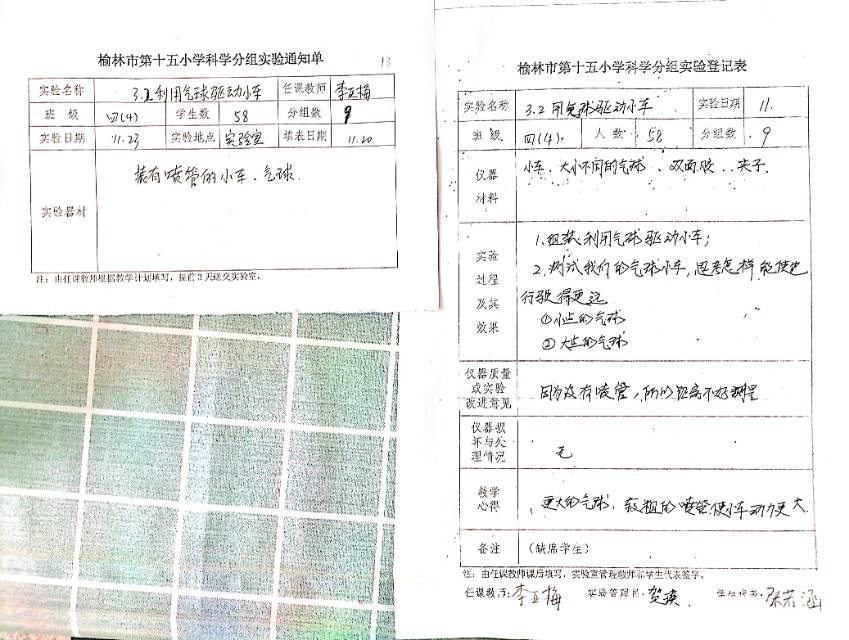 榆林市第十五小学科学分组实验通知单
13
实验名称 3.2利用气球驱动小车 任课教师 李亚梅
班 级 四(4) 学生数 58 分组数 9
实验日期 11.23 实验地点 实验室 填表日期 11.20
实验器材 装有喷管的小车、气球.
注:由任课教师根据教学计划填写,提前3天送交实验室。
榆林市第十五小学科学分组实验登记表
实验名称 3.2 用气球驱动小车 实验日期 11.
班 级 四(4). 人 数 58 分组数 9
仪器材料 小车、大小不同的气球、双面胶、夹子.
实验过程及其效果
1.组装利用气球驱动小车;
2.测试我们的气球小车,思考怎样能使它
行驶得更远
①小些的气球
②大些的气球
仪器质量或实验改进意见 因为没有喷管,所以距离不好测量
仪器损坏与处理情况 无
教学心得 更大的气球,较粗的喷管使小车动力更大.
备注 (缺席学生)
注:由任课教师课后填写,实验室管理教师和学生代表签字。
任课教师:李亚梅 实验管理员:贺瑛 学生代表:张若涵